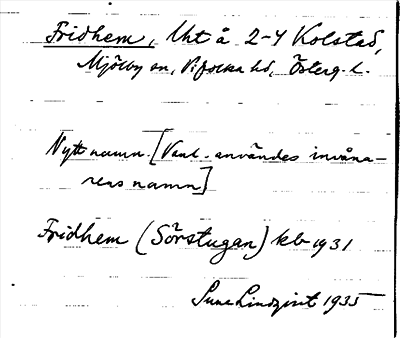 Fridhem, Lht å 2-4 Kolstad,
Mjölby sn, Vifolka hd, Österg. l.
Nytt namn. [Vanl. användes invåna-
rens namn]
Fridhem (Sörstugan) kb 1931
Sune Lindqvist 1935